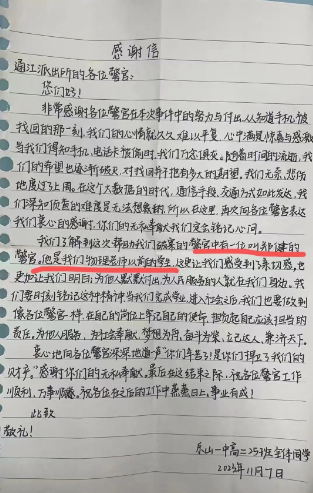 感谢信
通江派出所的各位警官:
您们好!
非常感谢各位警官在本次事件中的努力与付出,从知道手机被
找回的那一刻,我们的心情就久久难以平复,心中满是惊喜与感激
当我们得知手机、电话卡被偷时,我们万念俱灰。随着时间的流逝,我
们的希望也逐渐破灭,对找回并不抱有多大的期望。我们无奈,悲伤
地度过了上周。在这个大数据的时代,通信手段,交通方式如此发达,我
们深知侦查的难度是无法想象的,所以在这里,再次向各位警官表达
我们衷心的感谢,你们的无私奉献我们定会铭记心间。
我们了解到这次帮助我们破案的警官中有一位叫
警官,他是我们物理老师以前的学生,这更让我们感受到了亲切感,也
更加让我们明白,为他人默默付出,为人民服务的人就在我们身边。我
们要时刻铭记这种精神,当我们完成学业,进入社会后,我们也要做到
像各位警官一样,在自己的岗位上牢记自己的使命,担负起自己应该担当的
责任。为他人服务,为社会奉献,梦想为舟,奋斗为桨,立己达人,兼济天下。
衷心地向各位警官深深地道声“你们辛苦了!是你们捍卫了我们的
财产。”感谢你们的无私奉献。最后在这结束之际,祝各位警官工作
顺利,万事顺意。祝各位在之后的工作中蒸蒸日上,事业有成!
此致
敬礼!
乐山一中高二25班全体同学
2023年11月7日